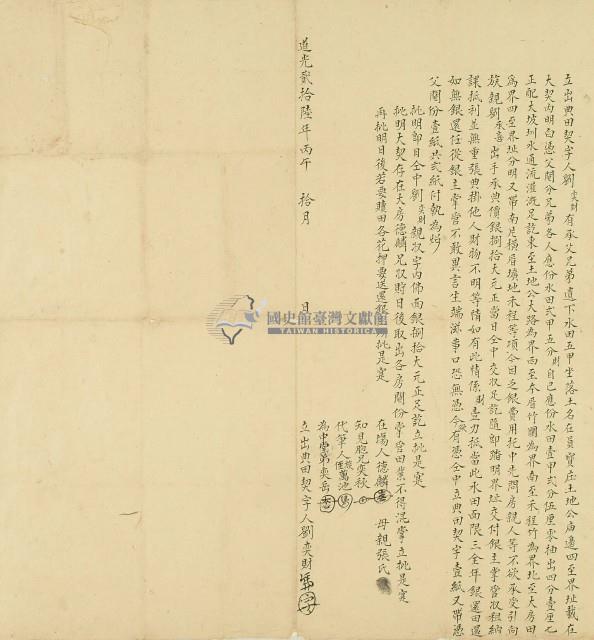 立出典田契字人劉奕財有承父兄弟遺下水田五甲坐落土名在員寶庄土地公庙邊四至界址載在
大契內明白憑父鬮分兄弟各人應份水田弍甲五分財自己應份水田壹甲弍分伍厘零抽出四分壹厘七
正配大坡圳水通流灌溉足訖東至土地公大路為界西至本厝竹圍為界南至禾埕竹為界北至大房田
為界四至界址分明又帶南片橫厝壙地禾埕等項今因乏銀費用托中先問房親人等不欲承受引向
族親劉承喜出手承典價銀捌拾大元正當日仝中交收足訖隨即踏明界址交付銀主掌管收租納
課抵利並無重張典掛他人財物不明等情如有此情係財壹力抵當此水田面限三全年銀還田還
如無銀還任從銀主掌管不敢異言生端滋事口恐無憑今欲有憑仝中立典田契字壹紙又帶憑
父鬮份壹紙共弍紙付執為炤
批明即日仝中劉奕財親收字內佛面銀捌拾大元正足訖立批是寔
批明大契存在大房德麟兄收貯日後取出各房鬮份掌管田業不得混掌立批是寔
再批明日後若要贖田各花押要送還銀批是寔
在場人德麟
母親張氏
知見胞兄奕秋
代筆人侄萬池
為中堂弟奕岳
立出典田契字人劉奕財
道光貳拾陸年丙午 拾月 日
國史館臺灣文獻館
TAIWAN HISTORICA